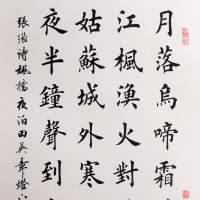 月落烏啼霜
江楓漁火對
姑蘇城外寒
夜半鐘聲到
張繼詩楓橋夜泊田英章